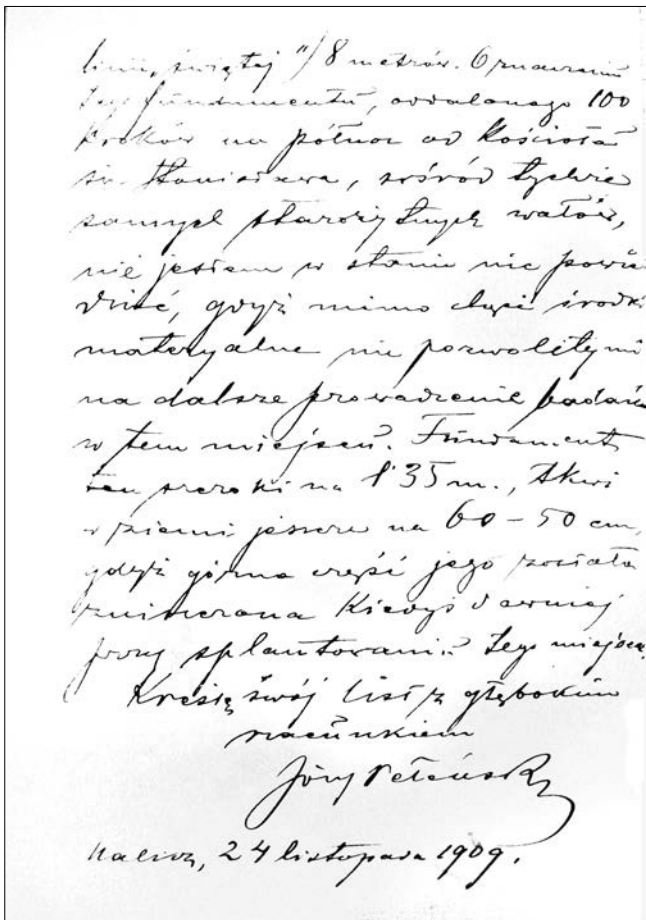 linii „świętej"/ 8 metrów. O znaczeniu
tego fundamentu, oddalonego 100
kroków na północ od Kościoła
św. Stanisława, wśród tychże
samych starożytnych wałów,
nie jestem w stanie nic powie
dzieć, gdyż mimo chęci środki
materyalne nie pozwoliły mi
na dalsze prowadzenie badań
w tem miejscu. Fundament
ten szeroki na 1·35 m., tkwi
w ziemi jeszcze na 60 – 50 cm,
gdyż górna część jego została
zniszczona kiedyś dawniej
przy splantowaniu tego miejsca.
Kreślę swój list z głębokim
szacunkiem
Halicz, 24 listopada 1909.